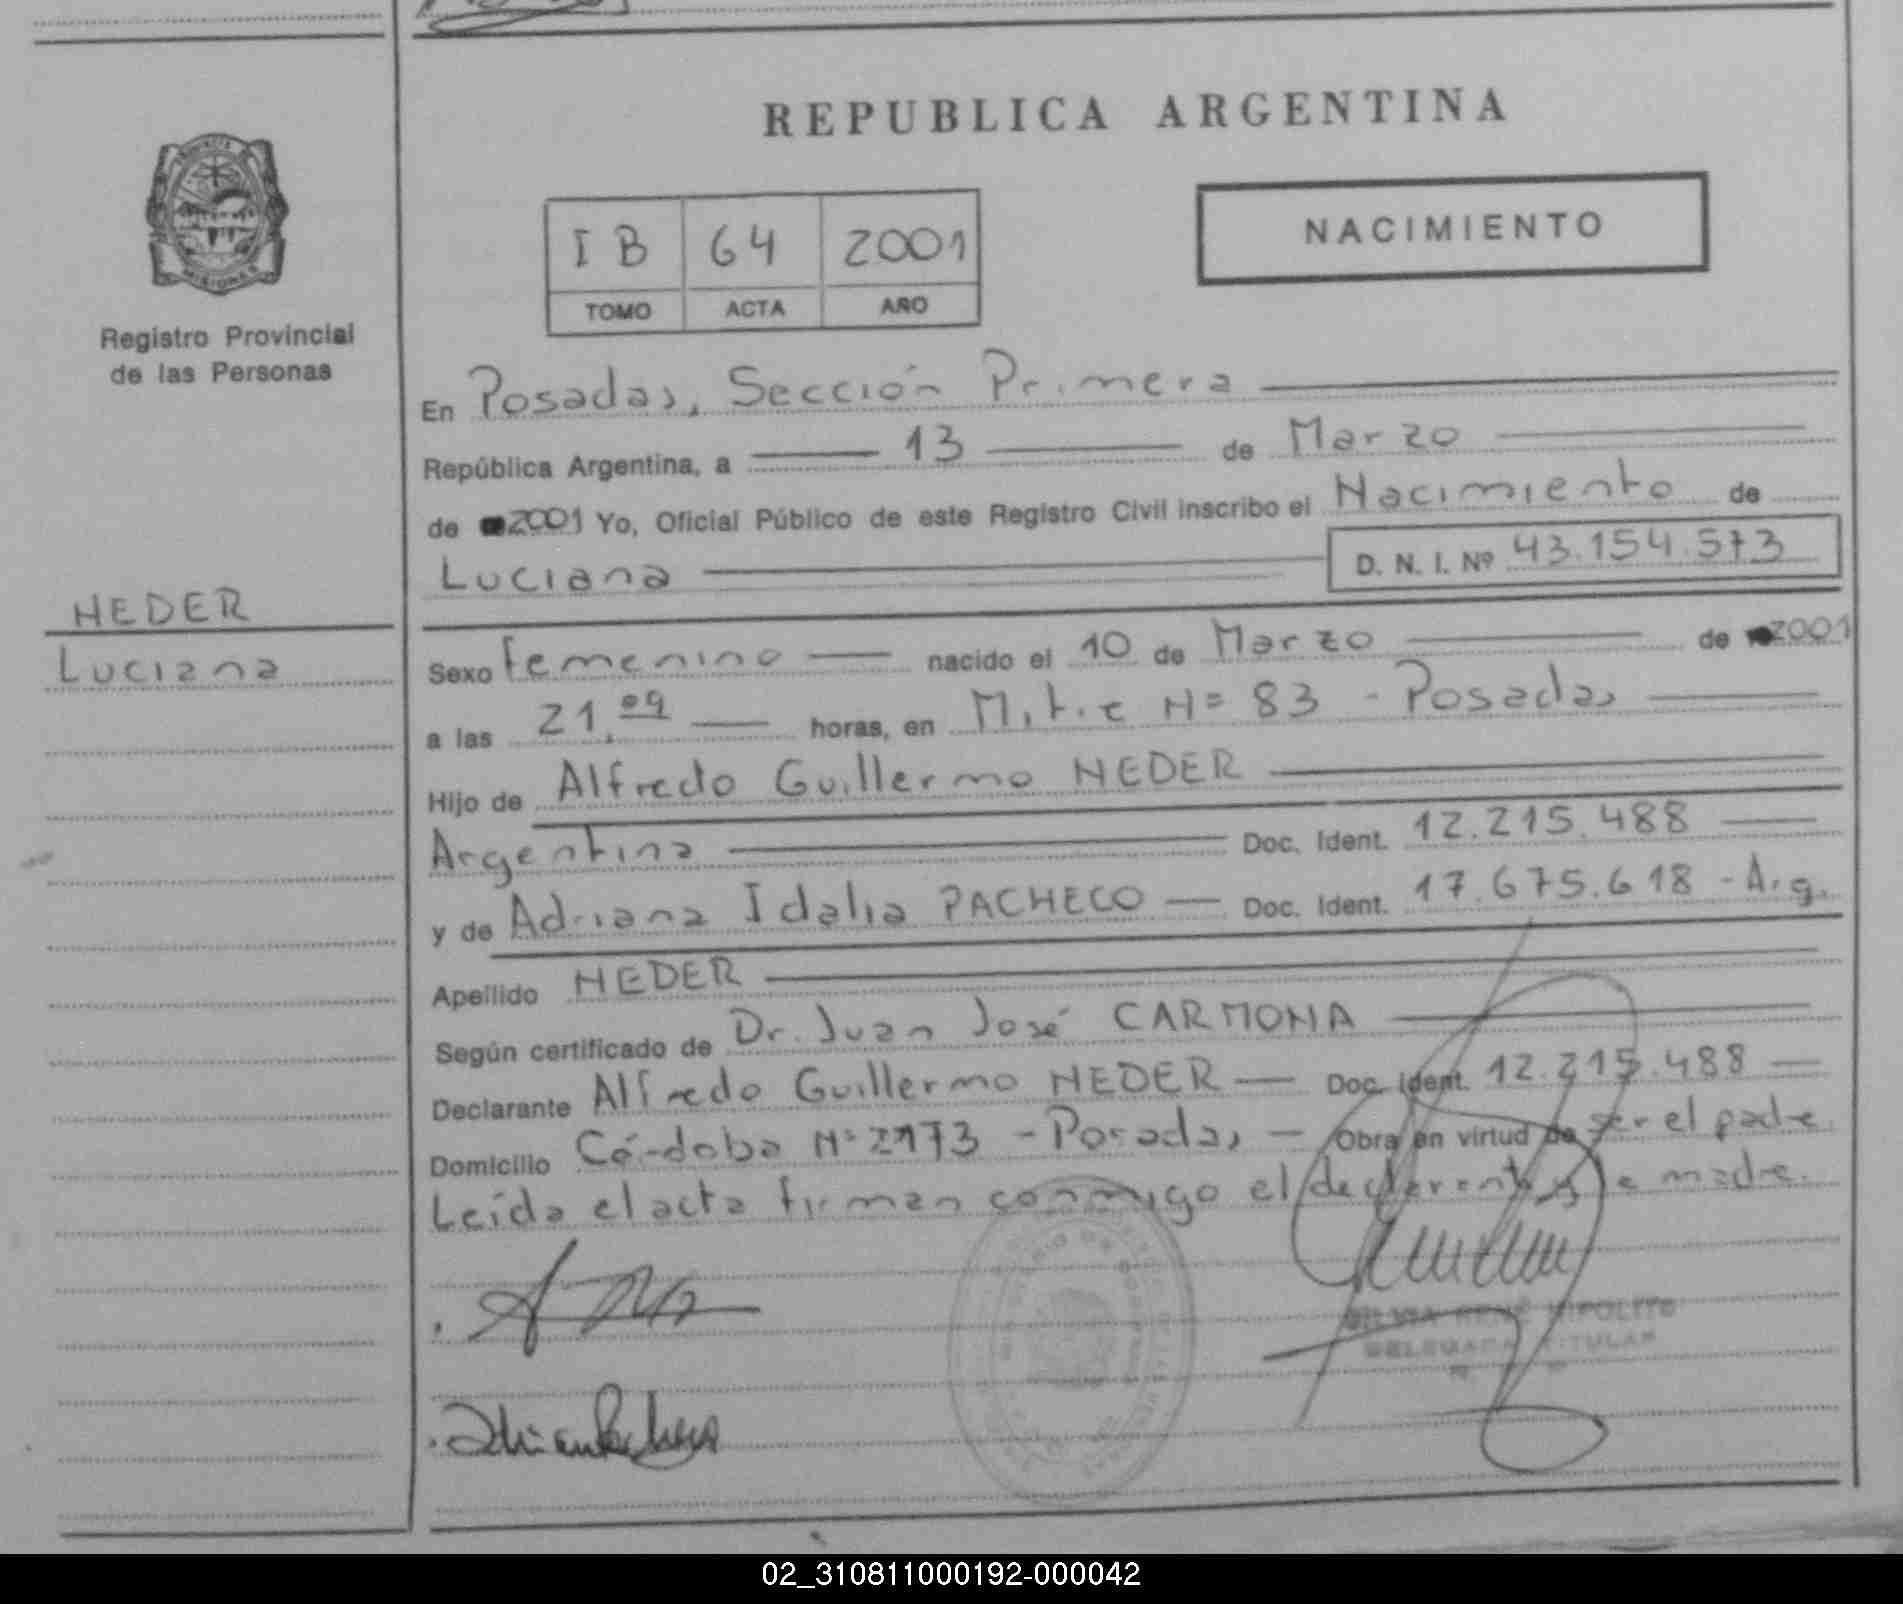 REPUBLICA ARGENTINA
NACIMIENTO
I B 64 2001
TOMO ACTA AÑO
MISIONES
Registro Provincial
de las Personas
En Posadas, Sección Primera
República Argentina, a 13 de Marzo
de 2001 Yo, Oficial Público de este Registro Civil inscribo el Nacimiento de
Luciana D. N. I. Nº 43.154.573
HEDER
Luciana
Sexo Femenino nacido el 10 de Marzo de 2001
a las 21,09 horas, en Mitre Nº 83 - Posadas
Hijo de Alfredo Guillermo HEDER
Argentina Doc. Ident. 12.215.488
y de Adriana Idalia PACHECO Doc. Ident. 17.675.618 - Arg.
Apellido HEDER
Según certificado de Dr. Juan José CARMONA
Declarante Alfredo Guillermo HEDER Doc. Ident. 12.215.488
Domicilio Córdoba Nº 2173 - Posadas - Obra en virtud de ser el padre.
Leída el acta firman conmigo el declarante y la madre.
SILVIA RENÉ HIPOLITO
DELEGADA TITULAR
02_310811000192-000042